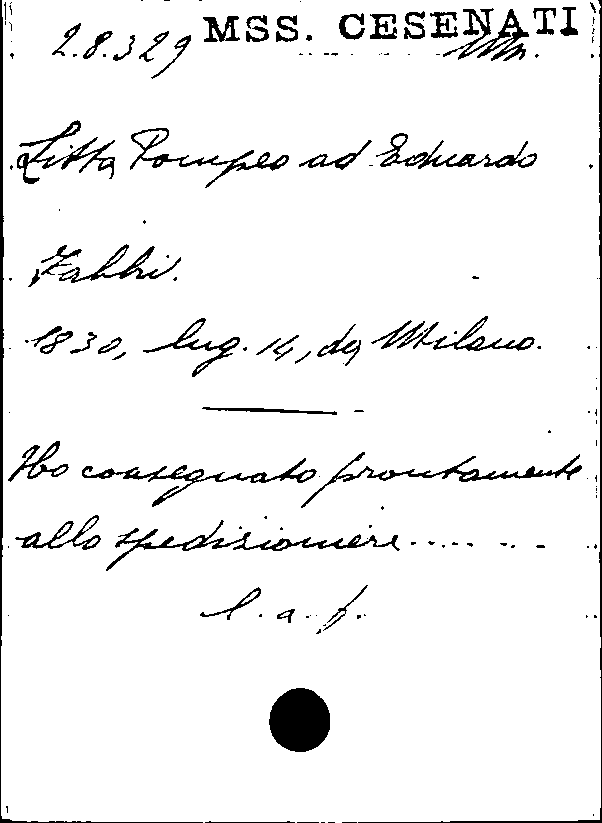 MSS. CESENATI
2.8.329 Mn.
Litta Pompeo ad Eduardo
Fabbri.
1830, lug. 14, da Milano.
Ho consegnato prontamente
allo spedizioniere........
l. a. f.